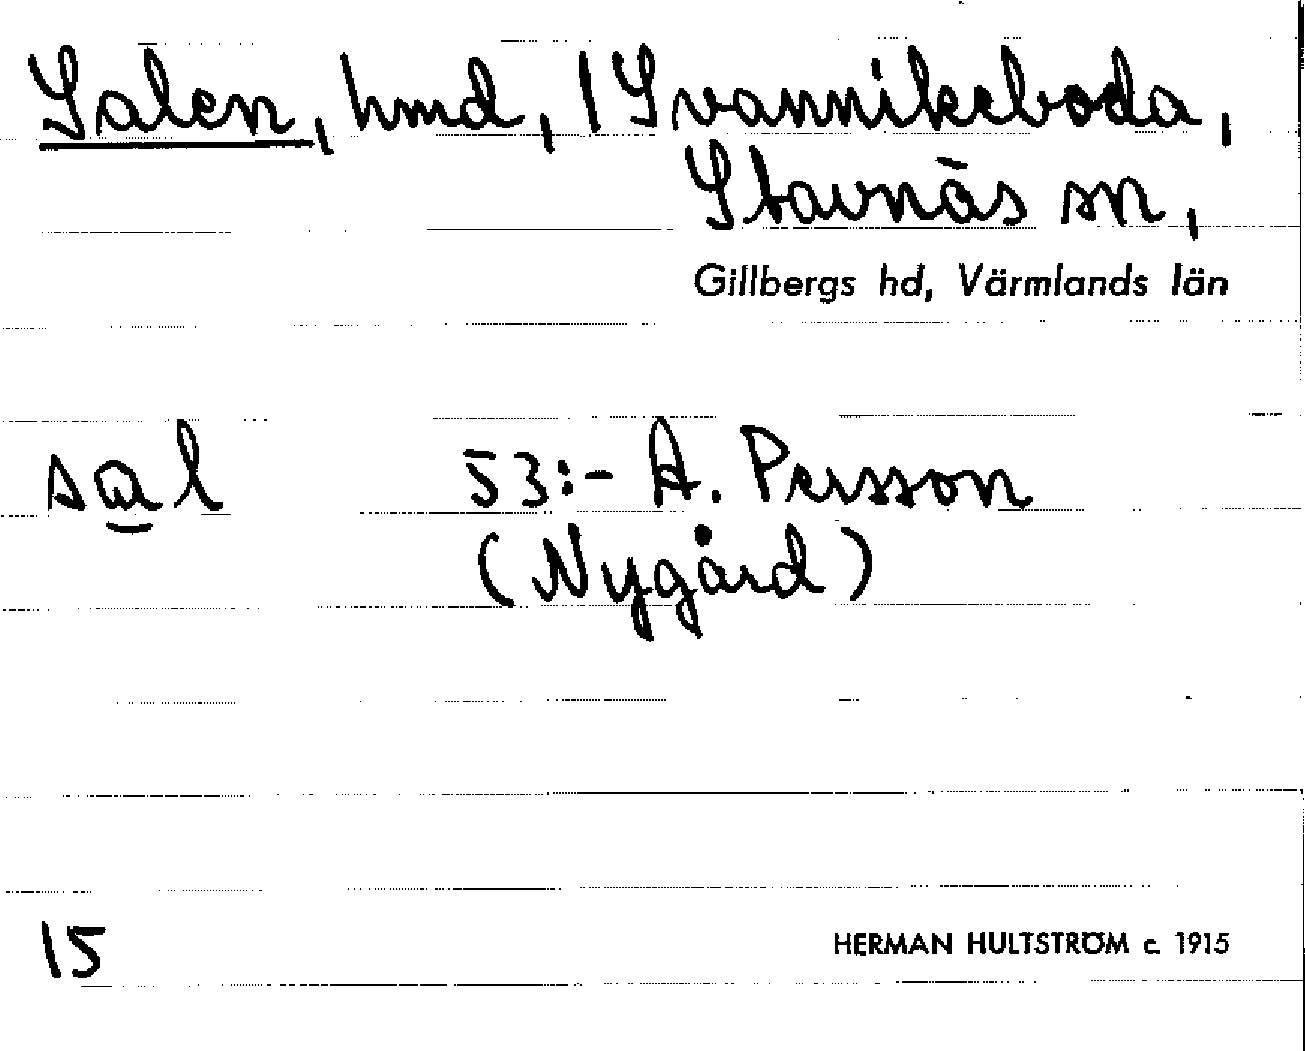 Salen, hmd, 1 Svannikeboda,
Stavnäs sn,
Gillbergs hd, Värmlands län
sal 53:- A. Persson
(Nygård)
15 HERMAN HULTSTRÖM c. 1915